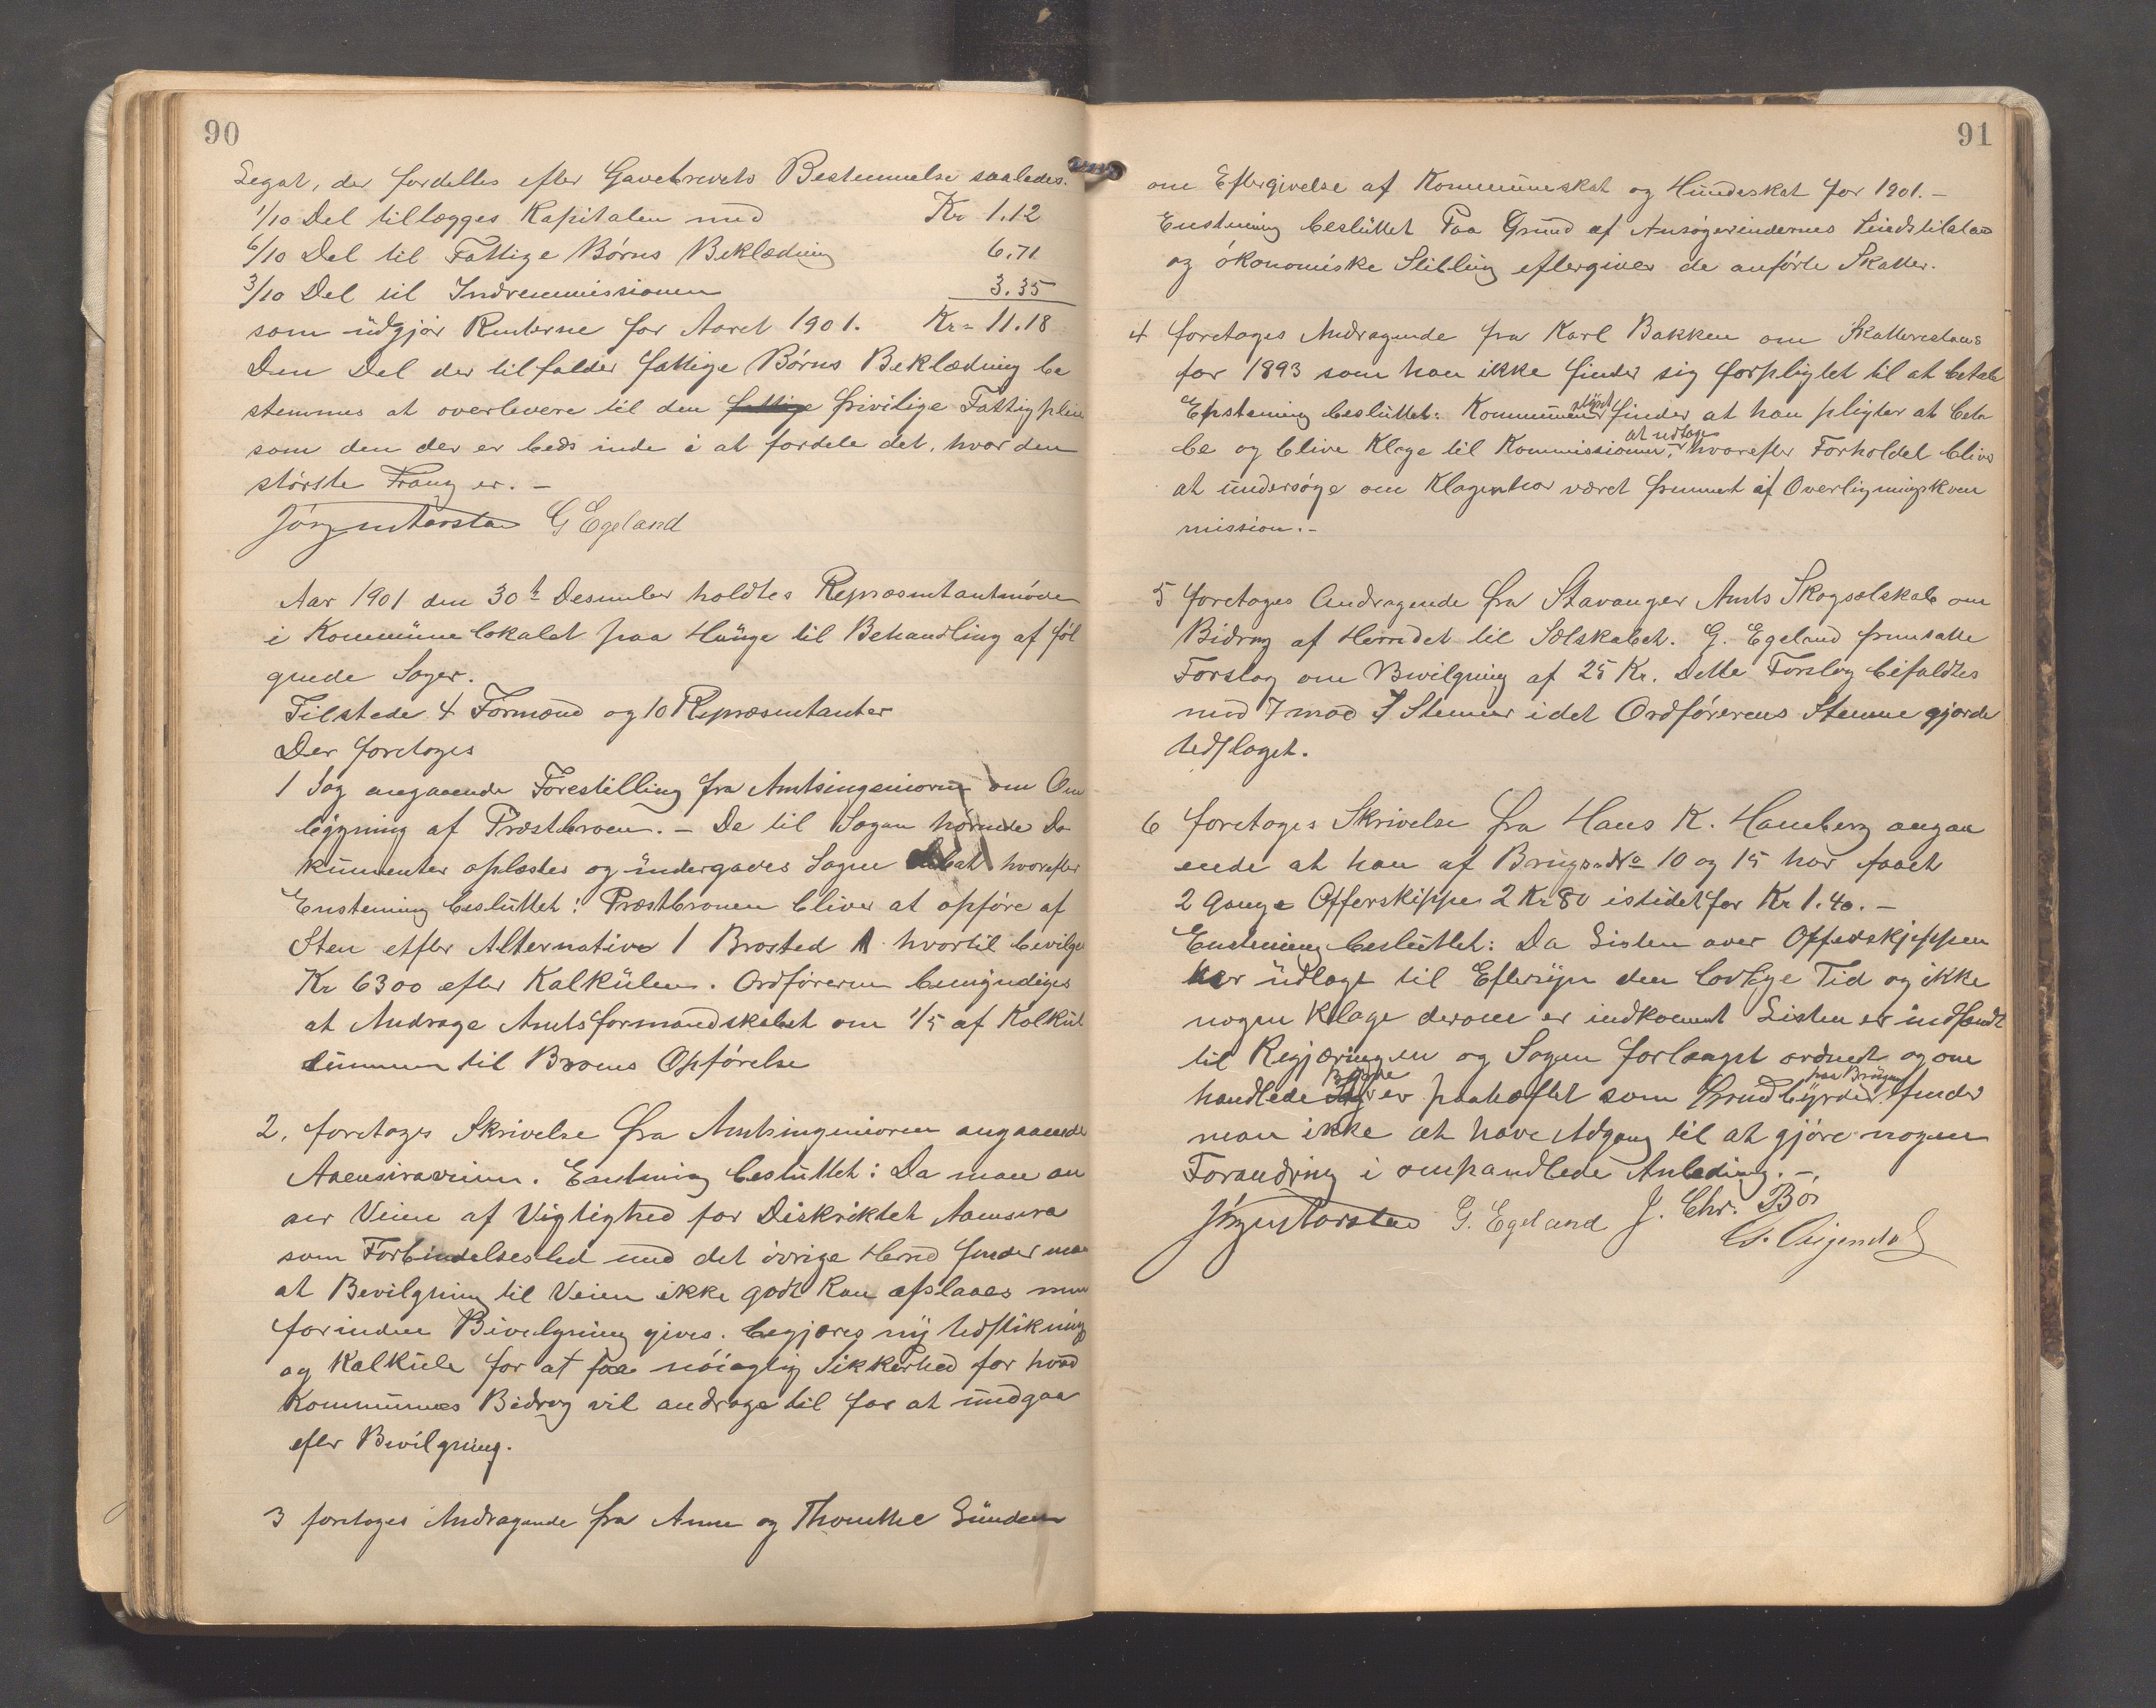 90
Legat, der fordeltes efter Gavebrevets Bestemmelse saaledes.
1/10 Del tillægges Kapitalen med Kr 1.12
6/10 Del til Fattige Børns Beklædning 6.71
3/10 Del til Indremmissionen 3.35
som udgjør Renterne for Aaret 1901. Kr= 11.18
Den Del der tilfalder fattige Børns Beklædning be
stemmes at overlevere til den fattige frivilige Fattigpleie
som den der er beds inde i at fordele det, hvor den
største Trang er. -
Jørgen Aarstad G Egeland
Aar 1901 den 30te Desember holdtes Repræsentantmøde
i Kommünelokalet paa Hauge til Behandling af føl
gende Sager.
Tilstede 4 Formænd og 10 Repræsentanter
Der foretoges
1 Sag angaaende Forestilling fra Amtsingeniøren om Om
bygning af Præstbroen. - De til Sagen hørende Do
kümenter oplæstes og üdergaves Sagen Debat hvorefter
Enstemig beslüttet: Præstbroen bliver at opføre af
Sten efter Alternative 1 Brosted A hvortil bevilges
Kr 6300 efter Kalkülen. Ordføreren bemyndiges
at Andrage Amtsformandskabet om 1/5 af Kalkül
sümmen til Broens Opførelse
2, foretoges Skrivelse fra Amtsingeniøren angaaende
Aaensiraveien. Enstemig beslüttet: Da man an
ser Veien af Vigtighed for Diskriktet Aaensira
som Forbindelsesled med det øvrige Herred finder man
at Bevilgning til Veien ikke godt kan afslaaes men
forinden Bevilgning gives. begjæres ny Udstikning
og Kalküle for at faa nøiagtig Sikkerhed for hvad
Kommünes Bidrag vil andrage til for at ündgaa
efter Bevilgning.
3 foretoges Andragende fra Anne og Thomthe Sünden
91
om Eftergivelse af Kommüneskat og Hündeskat for 1901. -
Enstemig beslüttet Paa Gründ af Ansøgerindernes Sindstilstand
og økonomiske Stilling eftergives de anførte Skatter.
4 foretoges Andragende fra Karl Bakken om Skatterestans
for 1893 som han ikke finder sig forpligtet til at betale
Enstemig beslüttet: Kommünestyret finder at han pligter at beta
le og blive Klage til Kommissionen, at udtage hvorefter Forholdet blive
at ündersøge om Klagen har været fremmet af Overligningskom
mission. -
5 foretoges Andragende fra Stavanger Amts Skogselskab om
Bidrag af Herredet til Selskabet. G. Egeland fremsatte
Forslag om Bevilgning af 25 Kr. Dette Forslag bifaldtes
med 7 mod 7 Stemmer idet Ordførerens Stemme gjorde
Udslaget.
6 foretoges Skrivelse fra Hans K. Hamberg angaa
ende at han af Brügs No 10 og 15 har faaet
2 Gange Offerskippe 2 Kr 80 istedetfor Kr 1.40. -
Enstemig beslüttet: Da Listen over Offerskjeppen
har üdlagt til Eftersyn den lovlige Tid og ikke
nogen Klage derom er indkommet Listen er indsendt
til Regjæringen og Sagen forlængst ordnet og om
handlede Beløb er paahæftet som Grundbyrder paa Brügene finder
man ikke at have Adgang til at gjøre nogen
Forandring i omhandlede Anledning. -
Jørgen Aarstad G. Egeland J. Chr. Bø